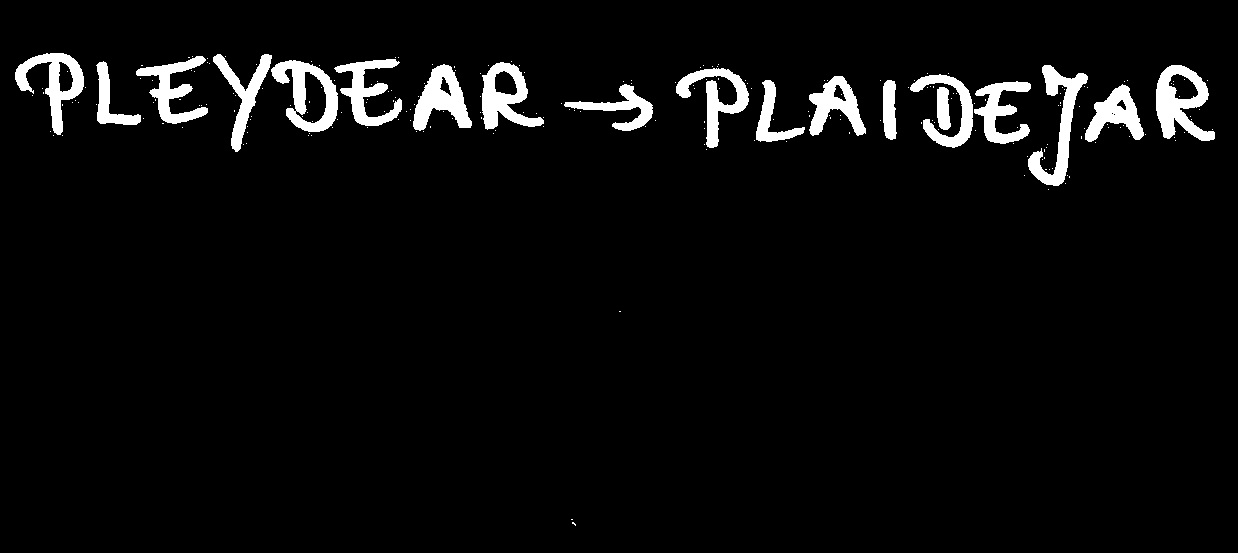 PLEYDEAR → PLAIDEJAR